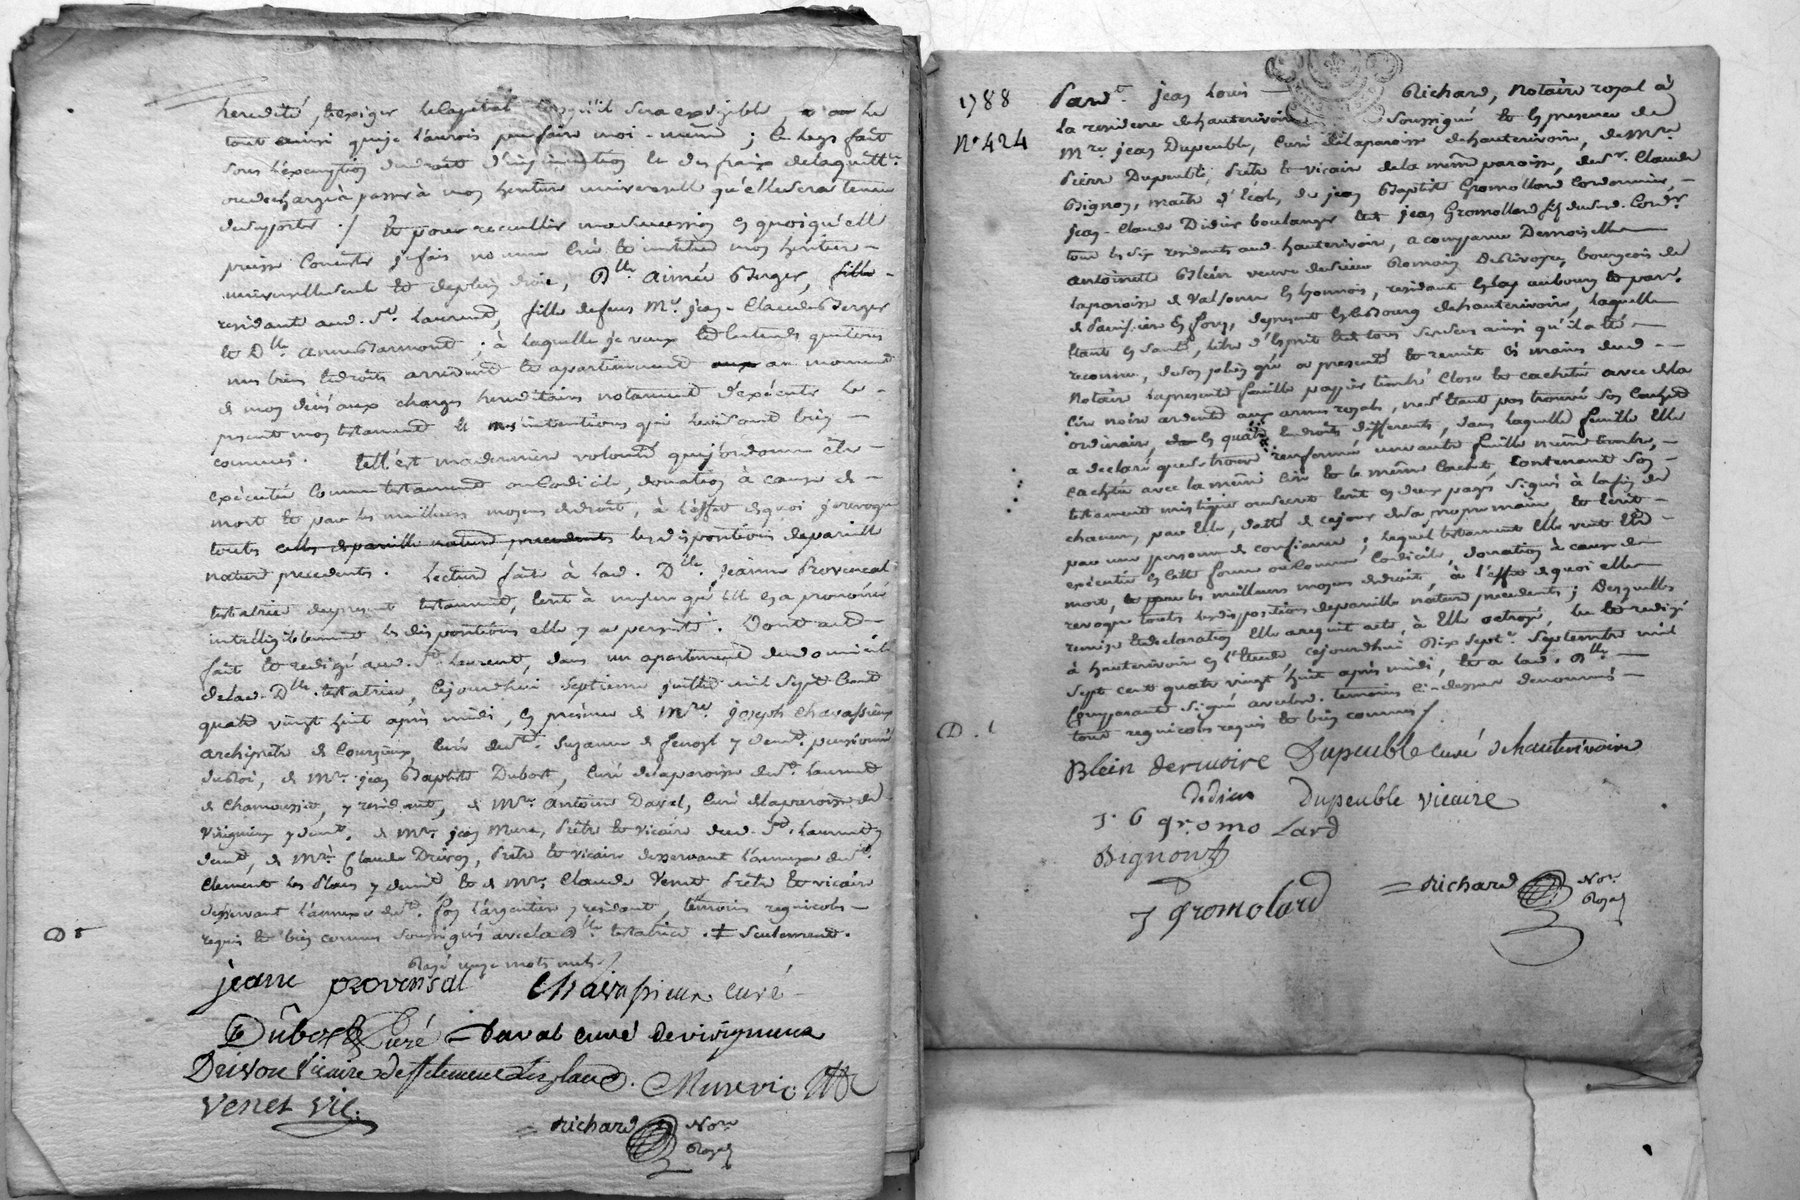 heredité, & exiger le capital lorsqu'il sera exigible, le
tout ainsi que je l'aurois peu faire moi-meme ; le legs fait
sous l'exemption du droit d'insinuation & des fraix de la quitt.ce
ou decharge à passer à mon heritiere universelle qu'elle sera tenue
de suporter ./ & pour recueillir ma succession en quoi qu'elle
puisse consister je fais nomme crée & institue mon heritiere
universelle seule & de plein droit, D.lle Aimée Berger, fille
residante aud. St. Laurent, fille de feus Me. jean-Claude Berger
& D.lle Anne Barmond ; à laquelle je veux & entends que tous
mes biens & droits arrivent & apartiennent au moment
de mon décès aux charges hereditaires notament d'exécuter le
present mon testament & mes intentions qui lui sont bien
connues. telle est ma derniere volonté que j'ordonne être
exécutée comme testament ou codicile, donation à cause de
mort & par les meilleurs moyens de droit, à l'effet de quoi je revoque
toutes celles de pareille nature precedentes les dispositions de pareille
nature precedentes. Lecture faite à lad. D.lle jeanne Provençal
testatrice du present testament, écrit à mesure qu'elle en a prononcé
intelligiblement les dispositions elle y a persisté. Dont acte
fait & redigé aud. St. Laurent, dans un apartement du domicile
de lad. D.lle testatrice, cejourdhui septieme juillet mil sept cent
quatre vingt huit après midi, en presence de Mre. joseph Chavassieux
archiprêtre de Courzieux, curé de Ste. Suzanne de y demt. pensionné
du Roi, de Mre. jean Baptiste Dubost, curé de la paroisse de St. Laurent
de Chamousset, y residant, de Mre. Antoine Daval, curé de la paroisse de
Virigneux y demt. de Mre. jean Mure, Prêtre & vicaire dud. St. Laurent y
demt, de Mre. Claude Drivon, Prêtre & vicaire desservant l'annexe de St.
Clement les Places y demt & de Mre. Claude Venet Prêtre & vicaire
desservant l'annexe de St. foy l'argentiere y residant, témoins regnicoles
requis & bien connus soussignés avec la D.lle testatrice. ‡ seulement.
Rayé onze mots nuls ./
jeane provensal Chavassieux curé
Dubost Curé Daval curé de virigneux
Drivon Vicaire de st clement les places. Mure vic
venet vic.
Richard Nore Royal
1788
N° 424
Pardt. jean Louis Richard, Notaire royal à
la residence de hauterivoire soussigné & en presence de
Mre. jean Dupeuble, curé de la paroisse de hauterivoire, de Mre.
Pierre Dupeuble, Prêtre & vicaire de la même paroisse, de Sr. Claude
Bignon, maitre d'école, de jean Baptiste Gromollard cordonnier,
jean-Claude Didier boulanger & jean Gromollard fils dudit. Cordr.
tous les six residants aud. hauterivoire, a comparue Demoiselle
Antoinette Blein veuve de sieur Romain Derivoire, bourgeois de
la paroisse de Valsonne en Lyonnois, residant en la paroisse
de en forez, de present en le Bourg de hauterivoire, laquelle
étant en santé, libre d'esprit & de tous ses sens ainsi qu'il a été
reconnu, de son plein gré a presenté & remit ès mains dud.
Notaire la presente feuille papier timbré close & cachetée avec de la
cire noire ardente aux armes royales, ne s'étant pas trouvé son cachet
ordinaire, en quatre endroits differents, dans laquelle feuille elle
a declaré que se trouve renfermé une autre feuille même timbre,
cachetée avec la même cire & le même cachet, contenant son
testament mistique ou secret écrit en deux pages signé à la fin de
chacune, par elle, daté de ce jour de sa propre main, & écrit
par une personne de confiance ; lequel testament elle veut être
exécuté en cette forme ou comme codicile, donation à cause de
mort, & par les meilleurs moyens de droit, à l'effet de quoi elle
revoque toutes les dispositions de pareille nature precedentes ; Desquelles
remise & declaration elle a requit acte, à elle octroyé, lu & redigé
à hauterivoire en l'Etude cejourdhui Dix Sept.e Septembre mil
sept cent quatre vingt huit après midi, & a lad. D.lle
comparante signé avec les témoins ci-dessus denommés
tous regnicoles requis & bien connus ./
D. 1
D 5
Blein derivoire Dupeuble curé de hauterivoire
didier Dupeuble vicaire
J. B gromolard
Bignon
J gromolard
Richard Nore Royal